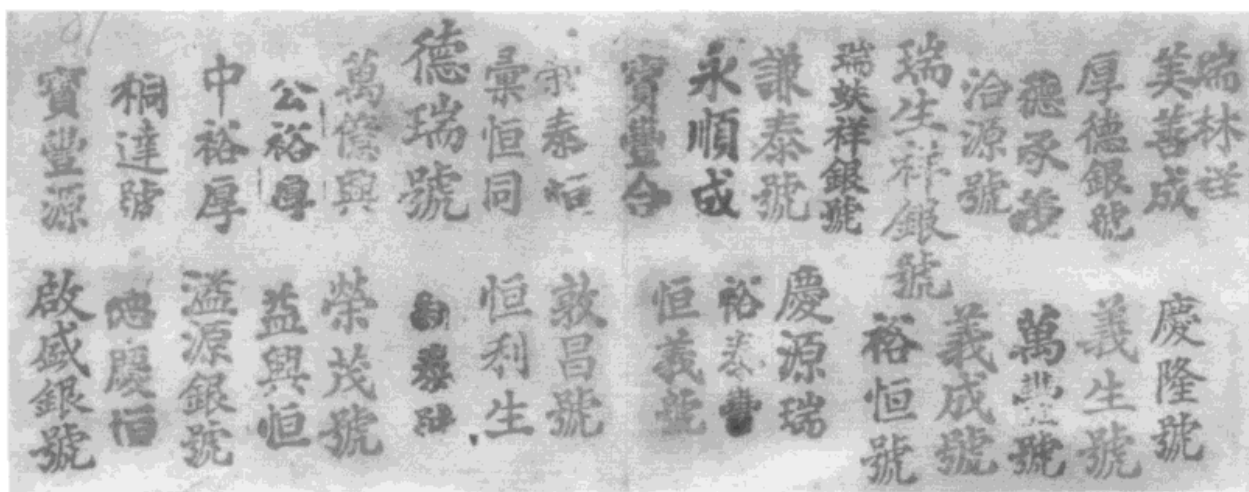 瑞林祥
美善成
厚德銀號
德承
洽源號
瑞生祥銀號
瑞蚨祥銀號
謙泰號
永順成
寶豐合
泰恒
彙恒同
德瑞號
萬億興
公裕厚
中裕厚
桐達號
寶豐源
慶隆號
義生號
萬豐號
義成號
裕恒號
慶源瑞
裕泰豐
恒義號
敦昌號
恒利生
泰號
榮茂號
益興恒
溢源銀號
德慶恒
啟盛銀號